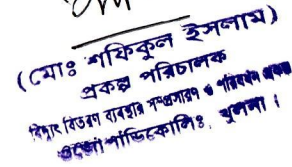 (মোঃ শফিকুল ইসলাম)
প্রকল্প পরিচালক
বিদ্যুৎ বিতরণ ব্যবস্থার সম্প্রসারণ ও পরিবর্ধন প্রকল্প
ওজোপাডিকোলিঃ, খুলনা।